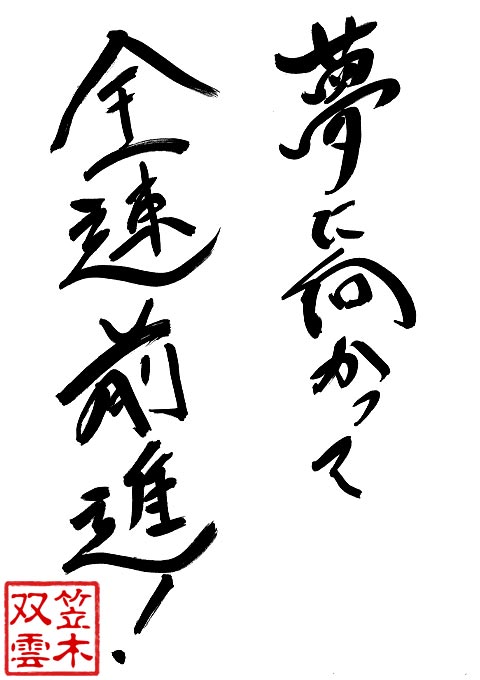 夢に向かって
全速前進!
笠木
双雲